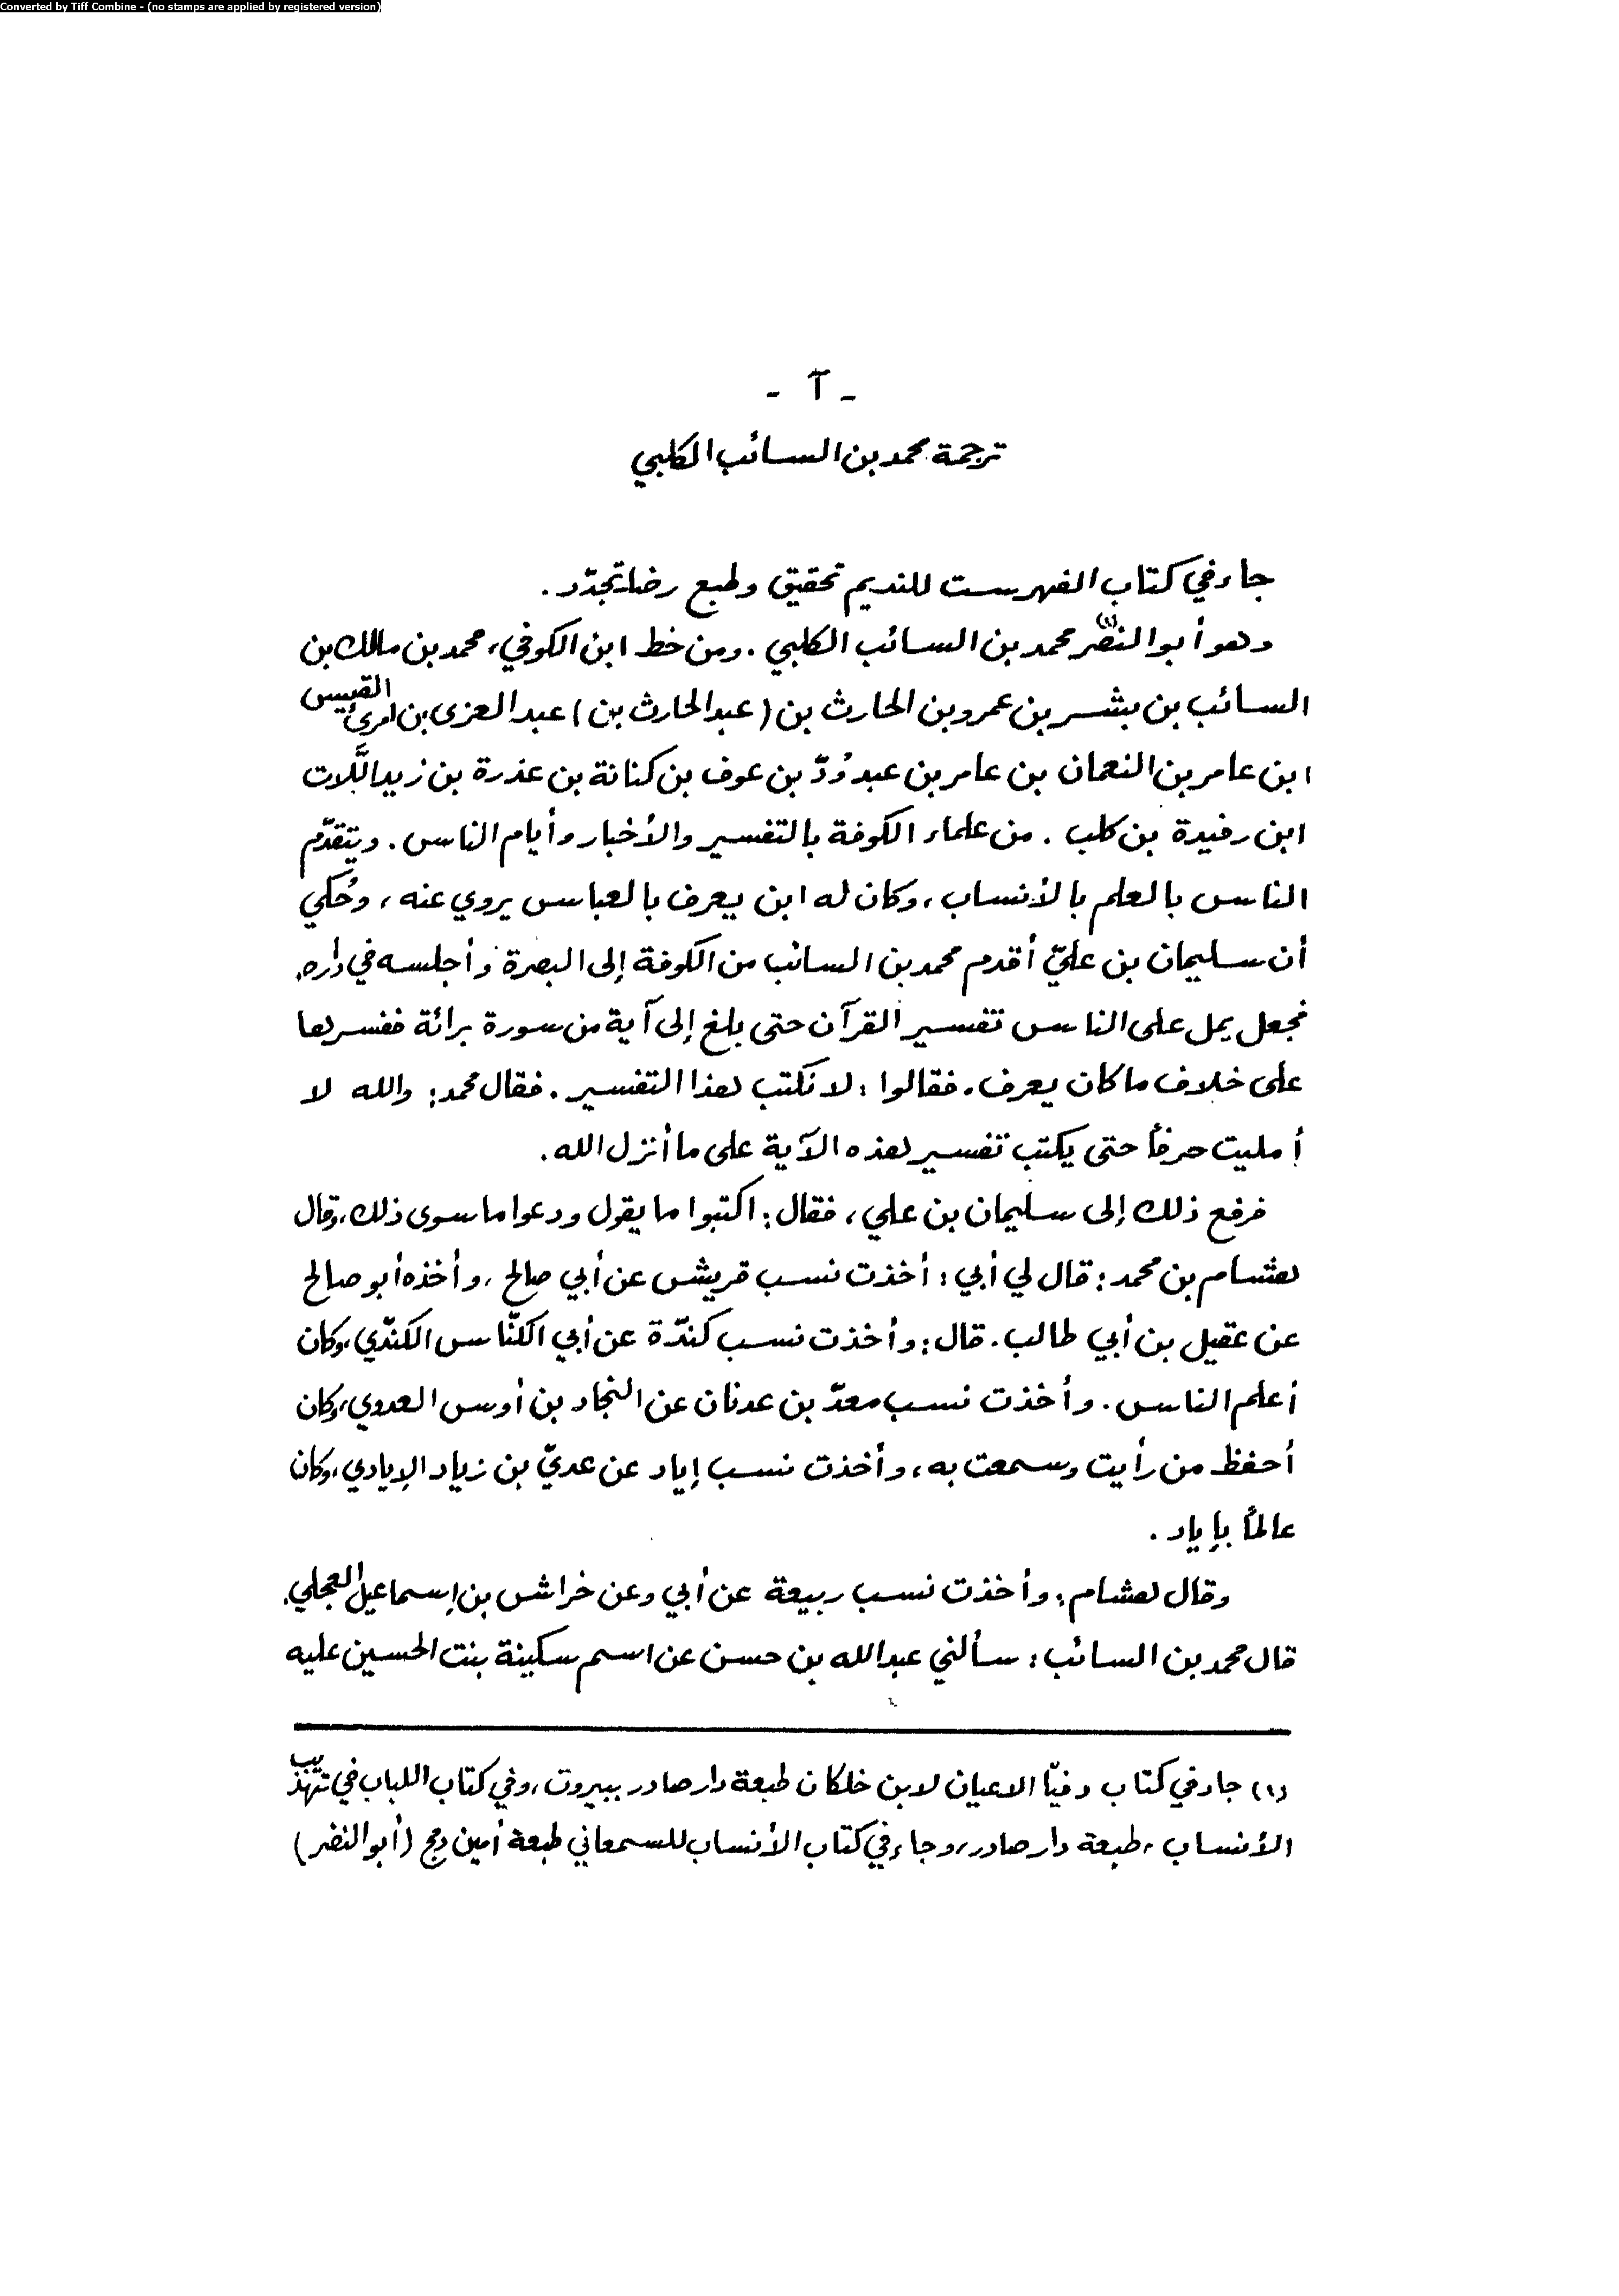 Converted by Tiff Combine - (no stamps are applied by registered version)
- آ -
ترجمة محمد بن السائب الكلبي
جاء في كتاب الفهرست للنديم تحقيق وطبع رضا تجدّد .
وهو أبو النصر(١) محمد بن السائب الكلبي . ومن خط ابن الكوفي، محمد بن مالك بن
السائب بن بشر بن عمرو بن الحارث بن (عبد الحارث بن) عبد العزى بن امرئ القيس
ابن عامر بن النعمان بن عامر بن عبد وُدّ بن عوف بن كنانة بن عذرة بن زيد الَّلات
ابن رفيدة بن كلب . من علماء الكوفة بالتفسير والأخبار وأيام الناس . ويتقدّم
الناس بالعلم بالأنساب ، وكان له ابن يعرف بالعباس يروي عنه ، وحُكي
أن سليمان بن عليّ أقدم محمد بن السائب من الكوفة إلى البصرة وأجلسه في داره.
فجعل يمل على الناس تفسير القرآن حتى بلغ إلى آية من سورة برائة ففسرها
على خلاف ما كان يعرف . فقالوا : لا نكتب هذا التفسير . فقال محمد : والله لا
أمليت حرفاً حتى يكتب تفسير هذه الآية على ما أنزل الله .
فرفع ذلك إلى سليمان بن علي ، فقال : اكتبوا ما يقول ودعوا ما سوى ذلك ، وقال
هشام بن محمد : قال لي أبي : أخذت نسب قريش عن أبي صالح ، وأخذه أبو صالح
عن عقيل بن أبي طالب . قال : وأخذت نسب كندّة عن أبي الكنّاس الكندّي ، وكان
أعلم الناس . وأخذت نسب معدّ بن عدنان عن النجاد بن أوس العدوي ، وكان
أحفظ من رأيت وسمعت به ، وأخذت نسب إياد عن عديّ بن زياد الإيادي ، وكان
عالماً بإياد .
وقال هشام : وأخذت نسب ربيعة عن أبي وعن خراش بن إسماعيل العجلي.
قال محمد بن السائب : سألني عبد الله بن حسن عن اسم سكينة بنت الحسين عليه
(١) جاء في كتاب وفيّا الاعيان لابن خلكان طبعة دار صادر ببيروت ، وفي كتاب اللباب في تهذيب
الأنساب ، طبعة دار صادر ، وجاء في كتاب الأنساب للسمعاني طبعة أمين دمج (أبو النضر)